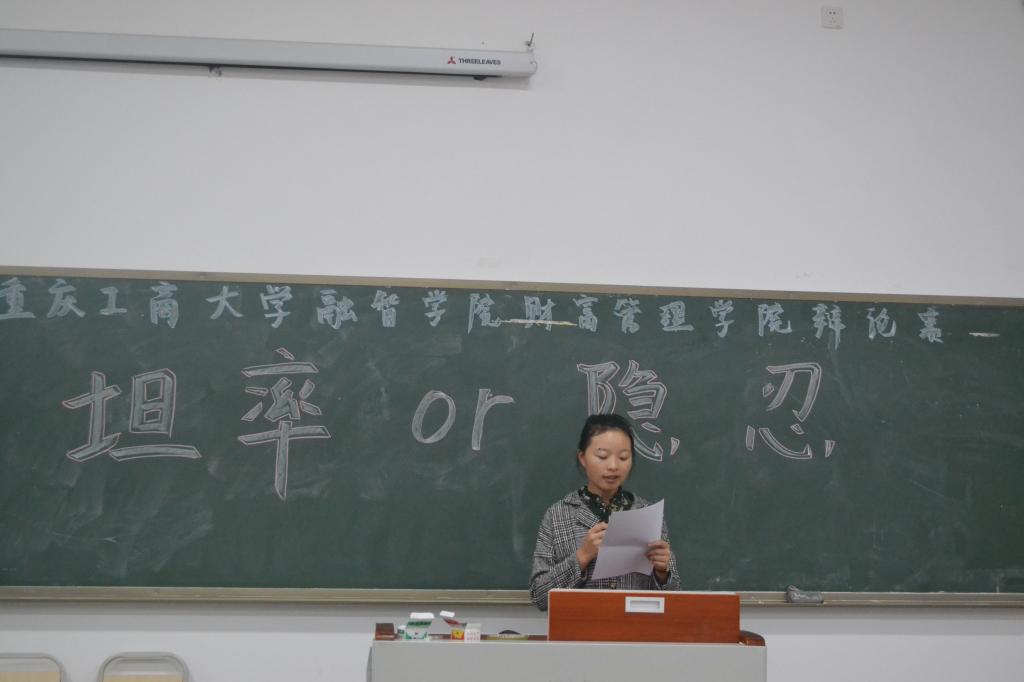 THREELEAVES
重庆工商大学融智学院财富管理学院辩论赛
坦率 or 隐忍